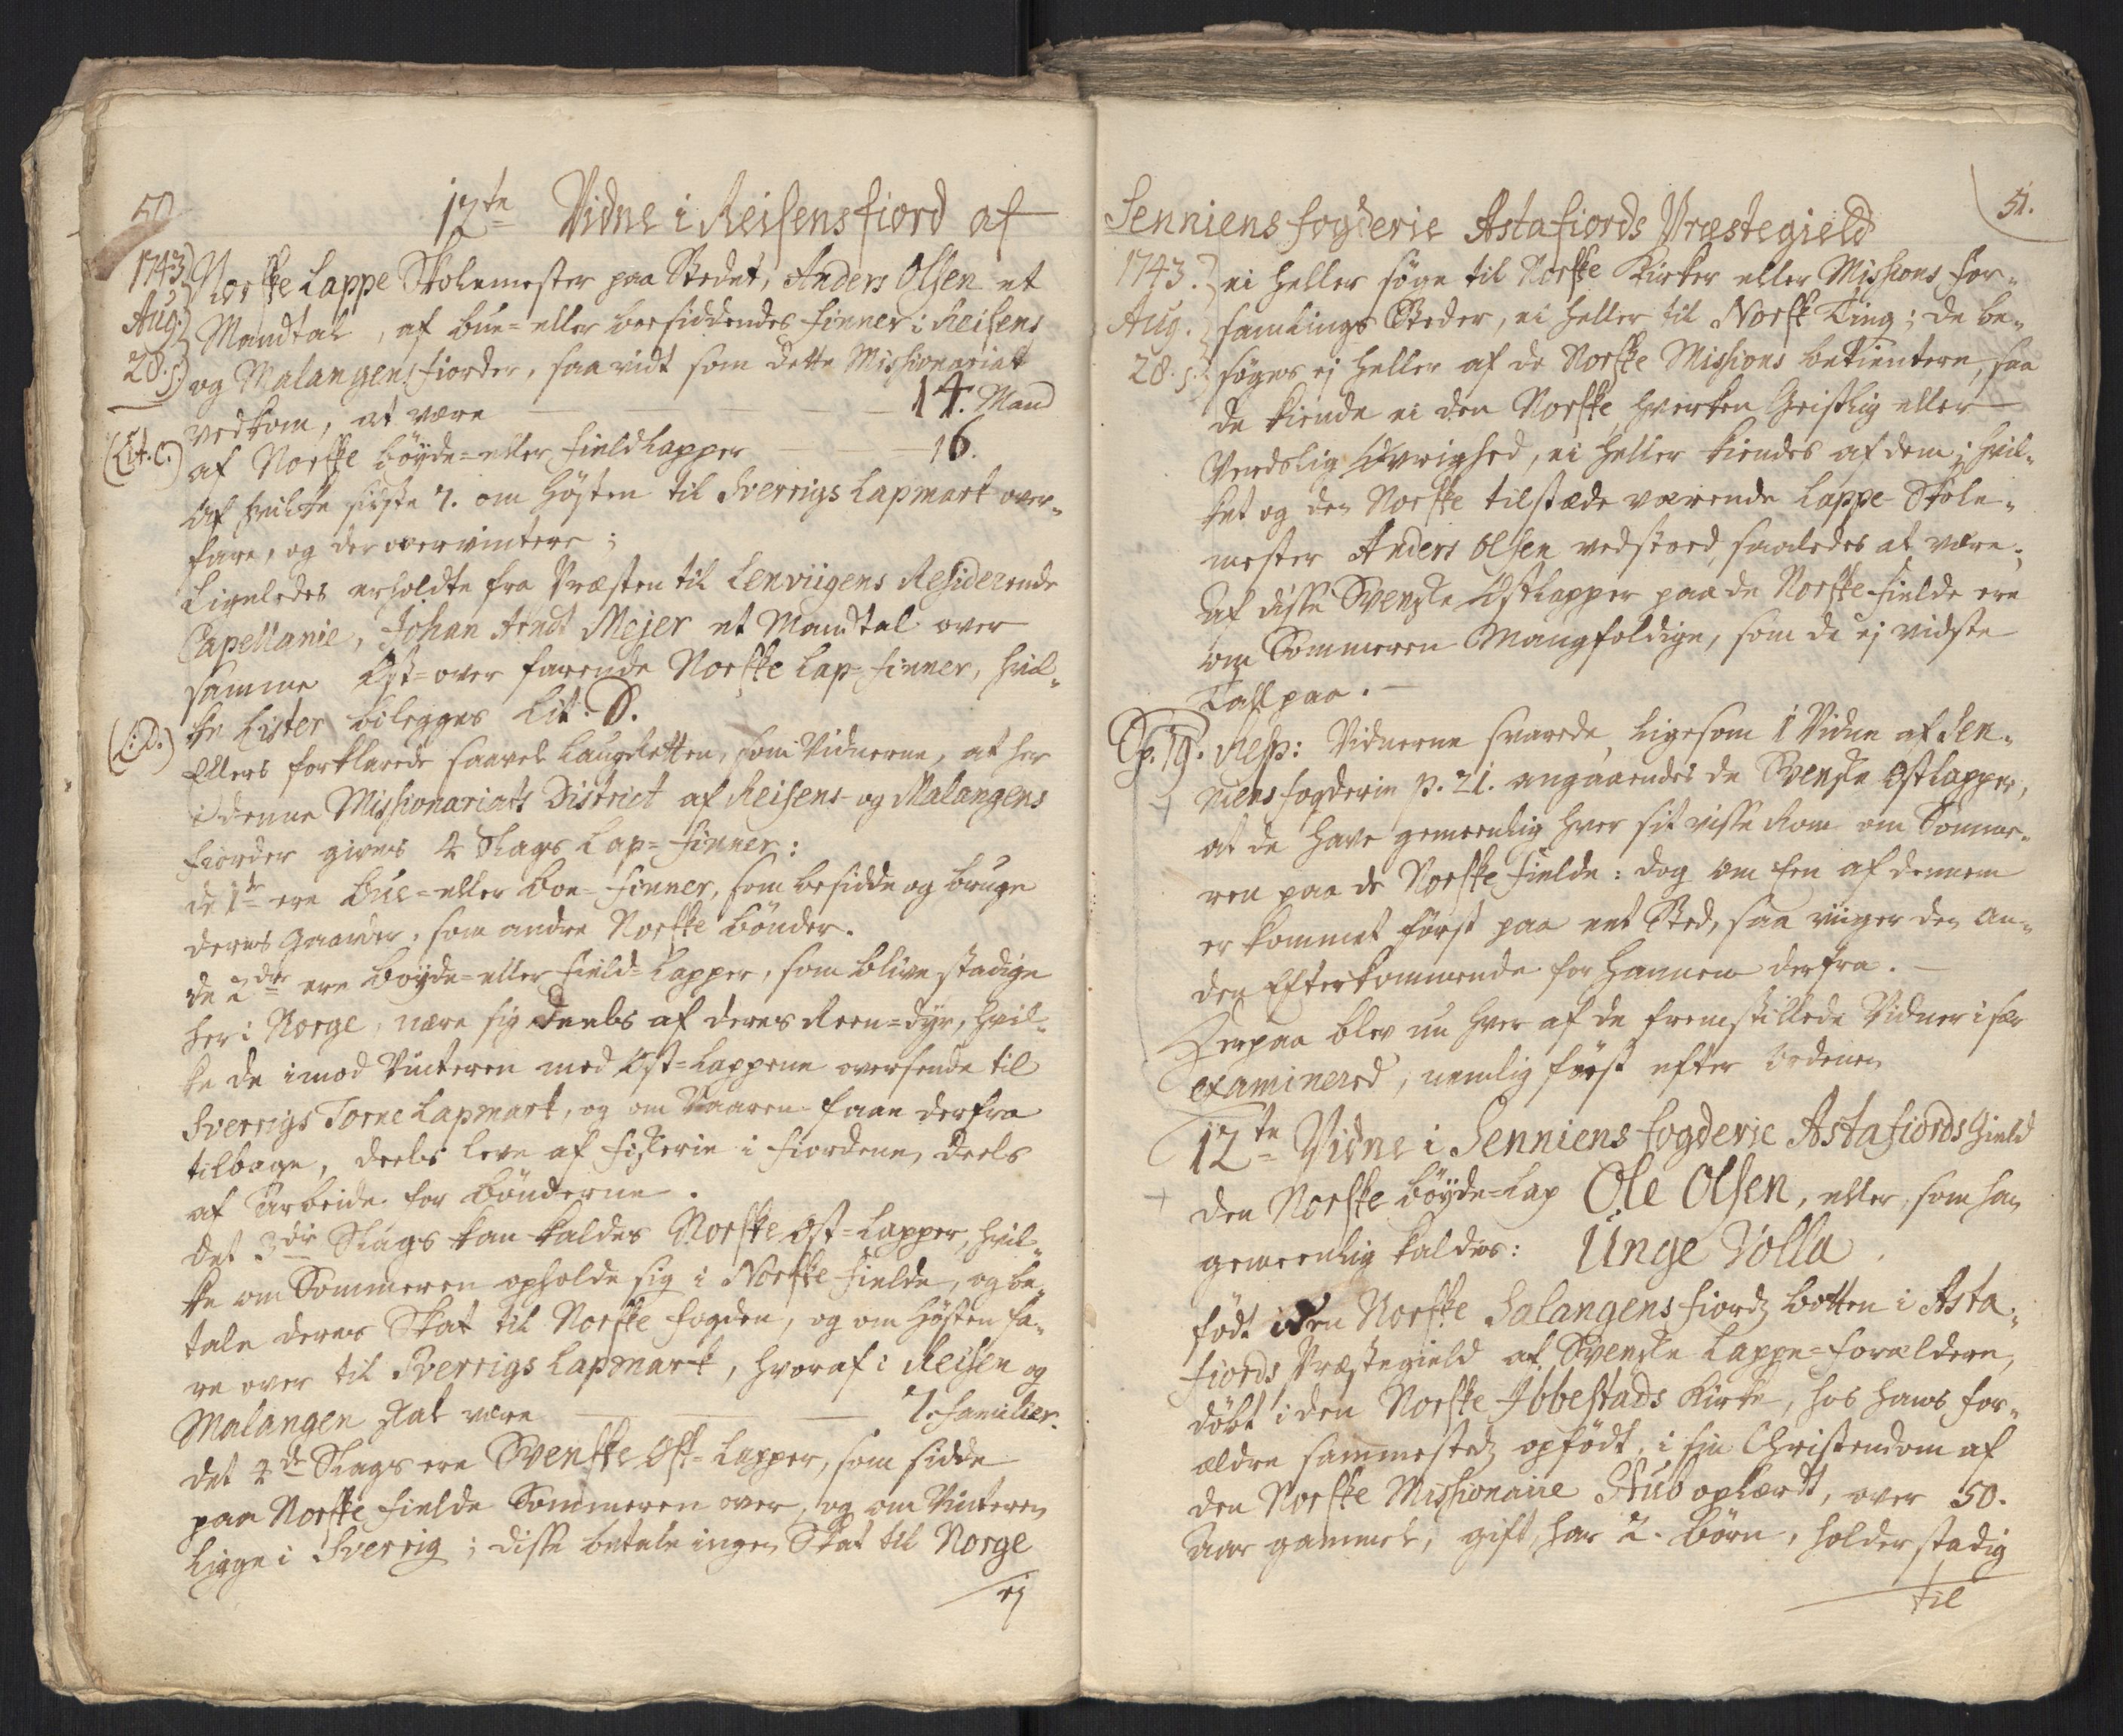 50
12te Vidne i Reisensfiord af
1743 Norske Lappe Skolemester paa Stedet, Anders Olsen et
Aug: Mandtal, af bue= eller boesiddendes finner i Reisens
28. s. og Malangens fiorder, saa vidt som dette Missionariat
vedkom, at være 14. Mand
(Lit. C.) af Norske böyde= eller fieldLapper 16.
af hvilke sidste 7. om Høsten til Sverrigs Lapmark over-
fare, og der overvintere;
Ligeledes erholdte fra Præsten til Lenviigens Residerende
Capellanie, Johan Arndt Mejer et Mandtal over
samme Øst=over farende Norske Lap=finner, hvil-
(L. D.) ke Lister bilegges Lit. D.
Ellers forklarede saavel Laugretten, som Vidnerne, at her
i denne Missionariats District af Reisens- og Malangens
fiorder gives 4 Slags Lap=finner:
de 1te ere bue= eller boe=finner, som besidde og bruge
deres Gaarder, som andre Norske bönder.
de 2dre ere böyde= eller field=Lapper, som blive stadige
her i Norge, nære sig deels af deres Reen=dyr, hvil-
ke de imod Vinteren med Øst=Lapperne oversende til
Sverrigs Torne Lapmark, og om Vaaren faae derfra
tilbage, deels leve af fiskerie i fiordene, deels
af Arbeide for bönderne.
det 3die Slags kan kaldes Norske Øst=Lapper, hvil-
ke om Sommeren opholde sig i Norske fielde, og be-
tale deres Skat til Norske fogden, og om Høsten fa-
re over til Sverrigs Lapmark, hvoraf i Reisen og
Malangen skal være 7. familier.
det 4de Slags ere Svenske Øst=Lapper, som sidde
paa Norske fielde Sommeren over, og om Vinteren
ligge i Sverrig; disse betale ingen Skat til Norge
ej
51.
Senniens fogderie Astafiords Præstegield
1743. ei heller søge til Norske Kirker eller Missions for-
Aug. samlings Steder, ei heller til Norsk Ting; de be-
28. s. søges ej heller af de Norske Missions betientere, saa
de kiende ei den Norske, hverken Geistlig eller
Verdslig Øvrighed, ei heller kiendes af dem; hvil-
ket og den Norske tilstæde værende Lappe-Skole-
mester Anders Olsen vedstoed, saaledes at være;
Af disse Svenske Østlapper paa de Norske fielde ere
om Sommeren Mangfoldige, som de ej vidste
Tall paa.
Sp. 19. Resp: Vidnerne svarede, ligesom 1 Vidne af Sen-
niens fogderie p. 21. angaaendes de Svenske Østlapper,
at de have gemeenlig hver sit visse Rom om Somme-
ren paa de Norske fielde: dog om Een af dennem
er kommet först paa eet Sted, saa viiger den an-
den Efterkommende for hannem derfra.
Herpaa blev nu hver af de fremstillede Vidner i sær
examinered, nemlig först efter Ordenen
12te Vidne i Senniens fogderie Astafiords Gield
den Norske böyde=Lap Ole Olsen, eller, som han
gemeenlig kaldes: Unge Volla.
födt i den Norske Salangens fiords botten i Asta-
fiords Præstegield af Svenske Lappe=forældere,
döbt i den Norske Ibbestads Kirke, hos hans for-
ældre sammesteds opfödt, i sin Christendom af
den Norske Missionaire Stub oplærdt, over 50.
Aar gammel, gift, har 2. Börn, holder stadig
til